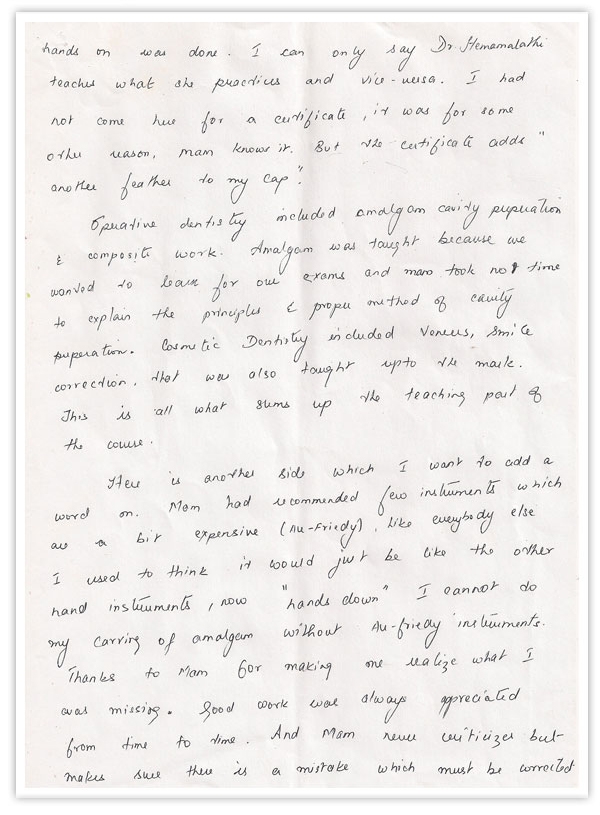 hands on was done. I can only say Dr. Hemamalathi
teaches what she practices and vice-versa. I had
not come here for a certificate, it was for some
other reason, mam knows it. But the certificate adds "
another feather to my cap".
Operative dentistry included amalgam cavity preparation
& composite work. Amalgam was taught because we
wanted to learn for our exams and mam took not time
to explain the principles & proper method of cavity
preparation. Cosmetic Dentistry included Veneers, Smile
correction, that was also taught upto the mark.
This is all what sums up the teaching part of
the course.
Here is another side which I want to add a
word on. Mam had recommended few instruments which
are a bit expensive (Hu-Friedy), like everybody else
I used to think it would just be like the other
hand instruments, now "hands down" I cannot do
my carving of amalgam without Hu-friedy instruments.
Thanks to Mam for making me realize what I
was missing. Good work was always appreciated
from time to time. And Mam never criticizes but
makes sure there is a mistake which must be corrected